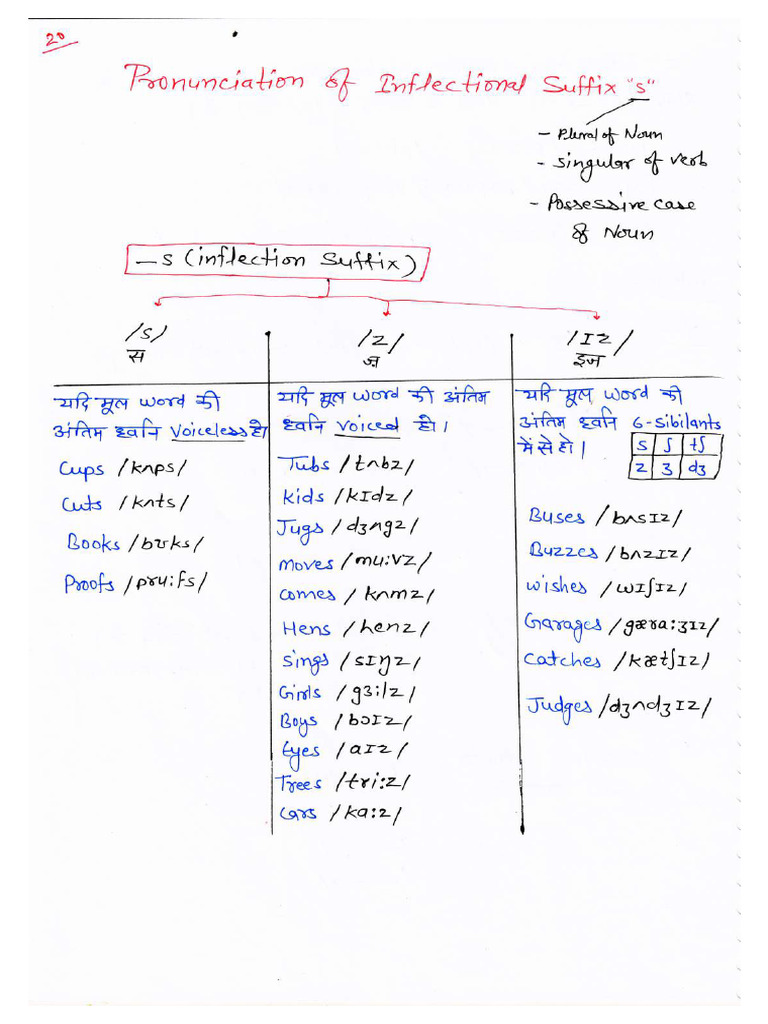 20
Pronunciation of Inflectional Suffix "s"
- Plural of Noun
- Singular of verb
- Possessive case
of Noun
-s (inflection Suffix)
/s/
स
/z/
ज़
/Iz/
इज
यदि मूल word की
अंतिम ध्वनि voiceless हो।
Cups /kʌps/
Cuts /kʌts/
Books /bʊks/
Proofs /pru:fs/
यदि मूल word की अंतिम
ध्वनि voiced हो।
Tubs /tʌbz/
Kids /kIdz/
Jugs /dʒʌgz/
Moves /mu:vz/
comes /kʌmz/
Hens /henz/
Sings /sIŋz/
Girls /gɜ:lz/
Boys /bɔIz/
Eyes /aIz/
Trees /tri:z/
Cars /ka:z/
यदि मूल word की
अंतिम ध्वनि 6-sibilants
में से हो।
s ʃ tʃ
z ʒ dʒ
Buses /bʌsIz/
Buzzes /bʌzIz/
wishes /wIʃIz/
Garages /gæra:ʒIz/
Catches /kætʃIz/
Judges /dʒʌdʒIz/